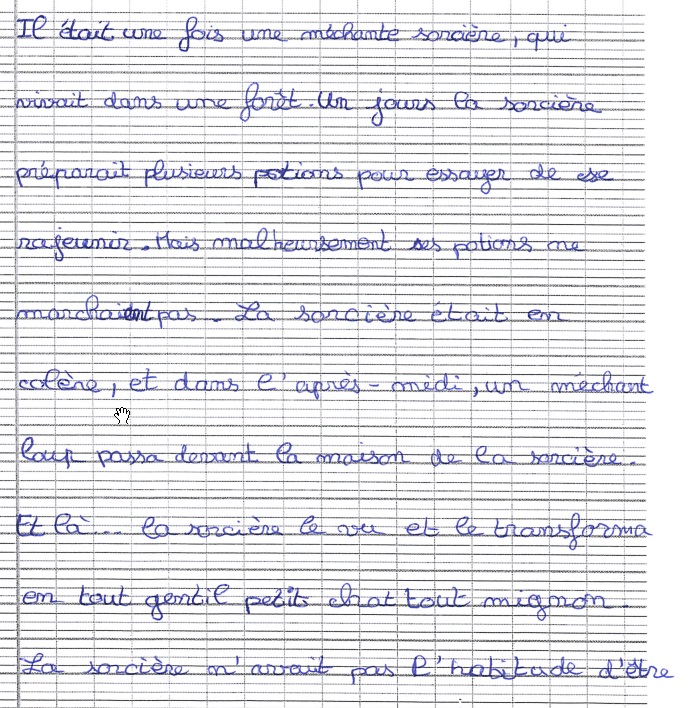 Il était une fois une méchante sorcière, qui
vivait dans une forêt. Un jours la sorcière
préparait plusieurs potions pour essayer de se
rajeunir. Mais malheursement ses potions ne
marchaient pas. La sorcière était en
colère, et dans l'après-midi, un méchant
loup passa devant la maison de la sorcière.
Et là... la sorcière le vu et le transforma
en tout gentil petits chat tout mignon.
La sorcière n'avait pas l'habitude d'être